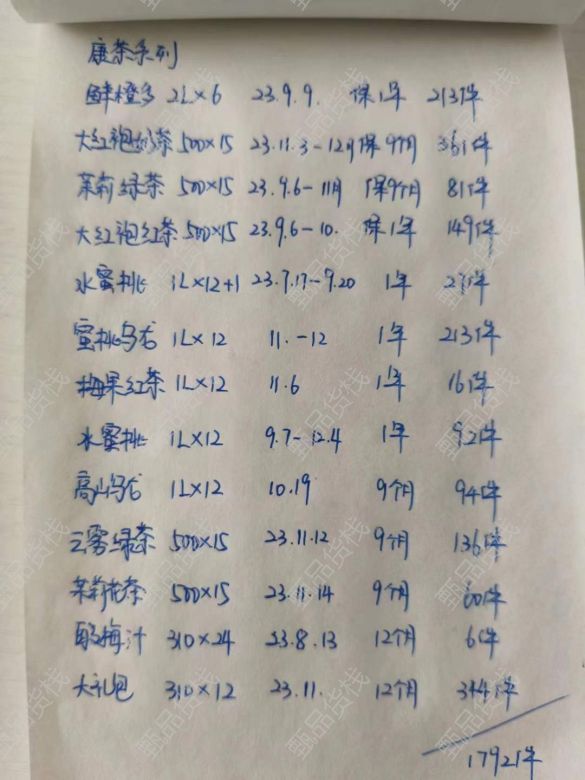 康茶系列
鲜橙多 2L×6 23.9.9. 保1年 213件
大红袍奶茶 500×15 23.11.3-12月 保9个月 361件
茉莉绿茶 500×15 23.9.6-11月 保9个月 81件
大红袍红茶 500×15 23.9.6-10. 保1年 149件
水蜜桃 1L×12+1 23.7.17-9.20 1年 27件
蜜桃乌龙 1L×12 11.-12 1年 213件
梅果红茶 1L×12 11.6 1年 16件
水蜜桃 1L×12 9.7-12.4 1年 92件
高山乌龙 1L×12 10.19 9个月 94件
云雾绿茶 500×15 23.11.12 9个月 136件
茉莉花茶 500×15 23.11.14 9个月 60件
酸梅汁 310×24 23.8.13 12个月 6件
大礼包 310×12 23.11. 12个月 344件
1792件
甄品货栈